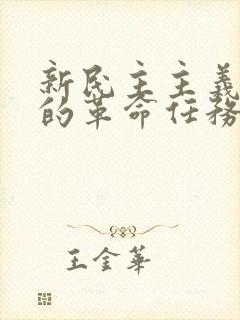 新民主主義
的革命任務
王金華